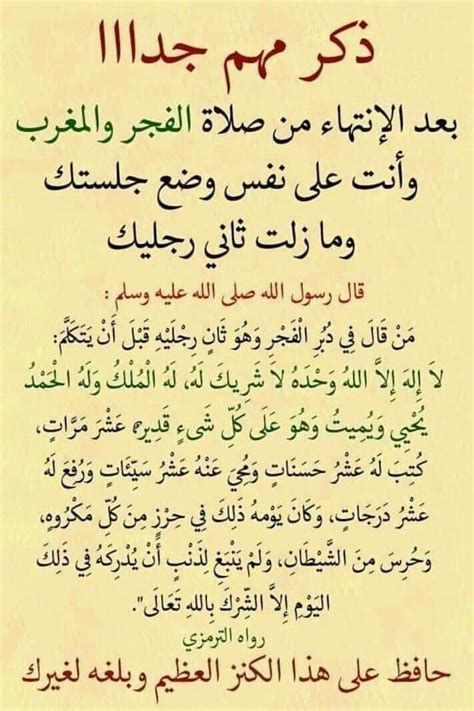 ذكر مهم جدااا
بعد الإنتهاء من صلاة الفجر والمغرب
وأنت على نفس وضع جلستك
وما زلت ثاني رجليك
قال رسول الله صلى الله عليه وسلم :
مَنْ قَالَ فِي دُبُرِ الْفَجْرِ وَهُوَ ثَانٍ رِجْلَيْهِ قَبْلَ أَنْ يَتَكَلَّمَ:
لاَ إِلهَ إِلاَّ اللهُ وَحْدَهُ لاَ شَرِيكَ لَهُ، لَهُ الْمُلْكُ وَلَهُ الْحَمْدُ
يُحْيِي وَيُمِيتُ وَهُوَ عَلَى كُلِّ شَىءٍ قَدِيرٍ، عَشْرَ مَرَّاتٍ،
كُتِبَ لَهُ عَشْرُ حَسَنَاتٍ وَمُحِيَ عَنْهُ عَشْرُ سَيِّئَاتٍ وَرُفِعَ لَهُ
عَشْرُ دَرَجَاتٍ، وَكَانَ يَوْمَهُ ذَلِكَ فِي حِرْزٍ مِنْ كُلِّ مَكْرُوهٍ،
وَحُرِسَ مِنَ الشَّيْطَانِ، وَلَمْ يَنْبَغِ لِذَنْبٍ أَنْ يُدْرِكَهُ فِي ذَلِكَ
الْيَوْمِ إِلاَّ الشِّرْكَ بِاللهِ تَعَالَى".
رواه الترمزي
حافظ على هذا الكنز العظيم وبلغه لغيرك